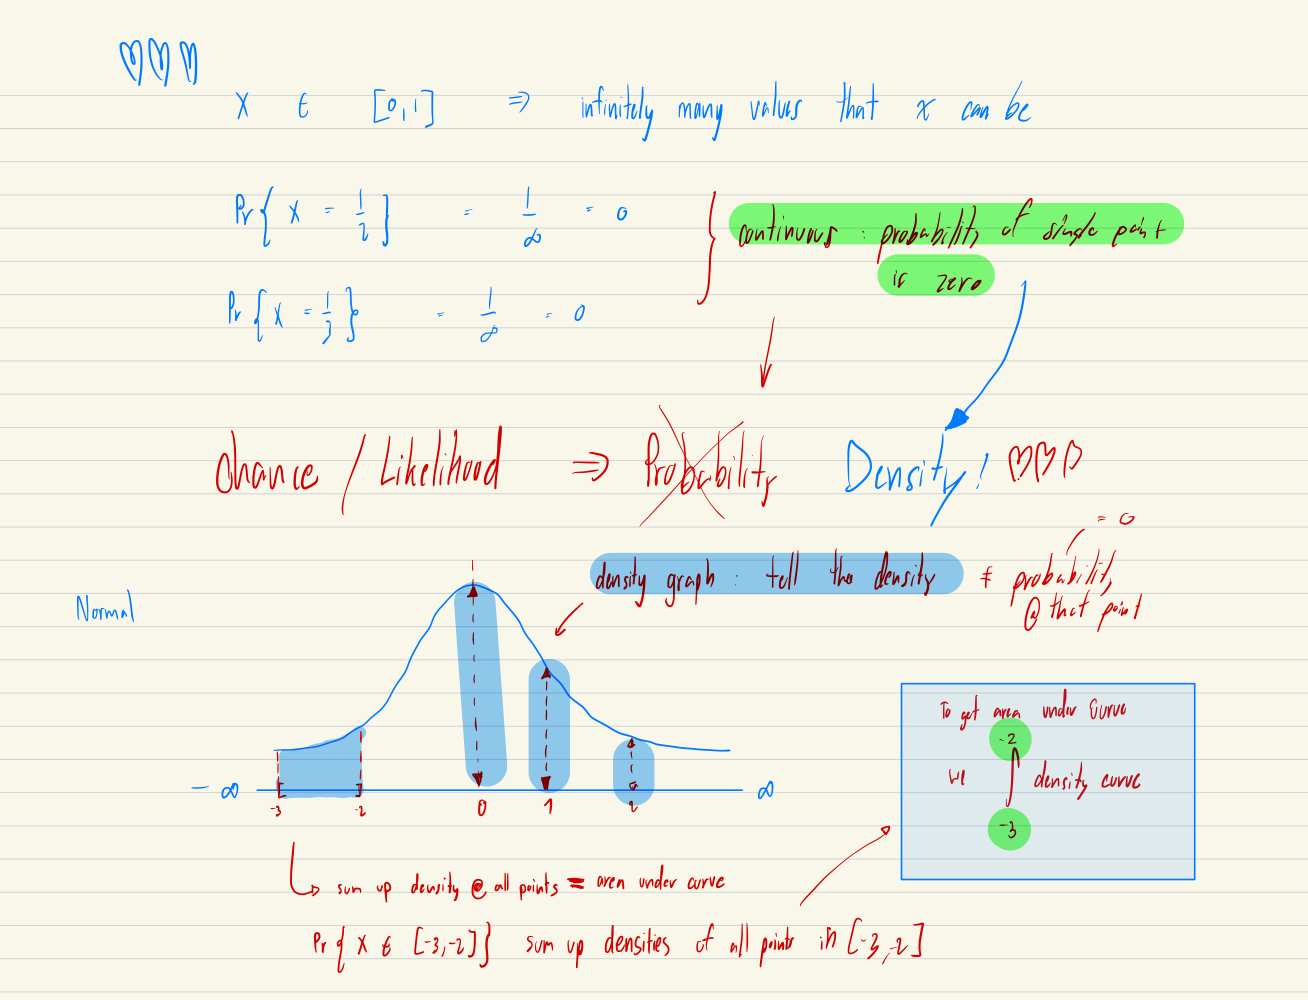 X ∈ [0,1] ⇒ infinitely many values that x can be
Pr{ X = 1/2 } = 1/∞ = 0
continuous : probability of single point
is zero
Pr{ X = 1/3 } = 1/∞ = 0
Chance / Likelihood ⇒ Probability Density! ♡♡♡
= 0
density graph : tell the density ≠ probability
@ that point
Normal
- ∞ ∞
-3 -2 0 1 2
To get area under curve
-2
we ∫ density curve
-3
↳ sum up density @ all points = area under curve
Pr{ X ∈ [-3,-2]} sum up densities of all points in [-3,-2]